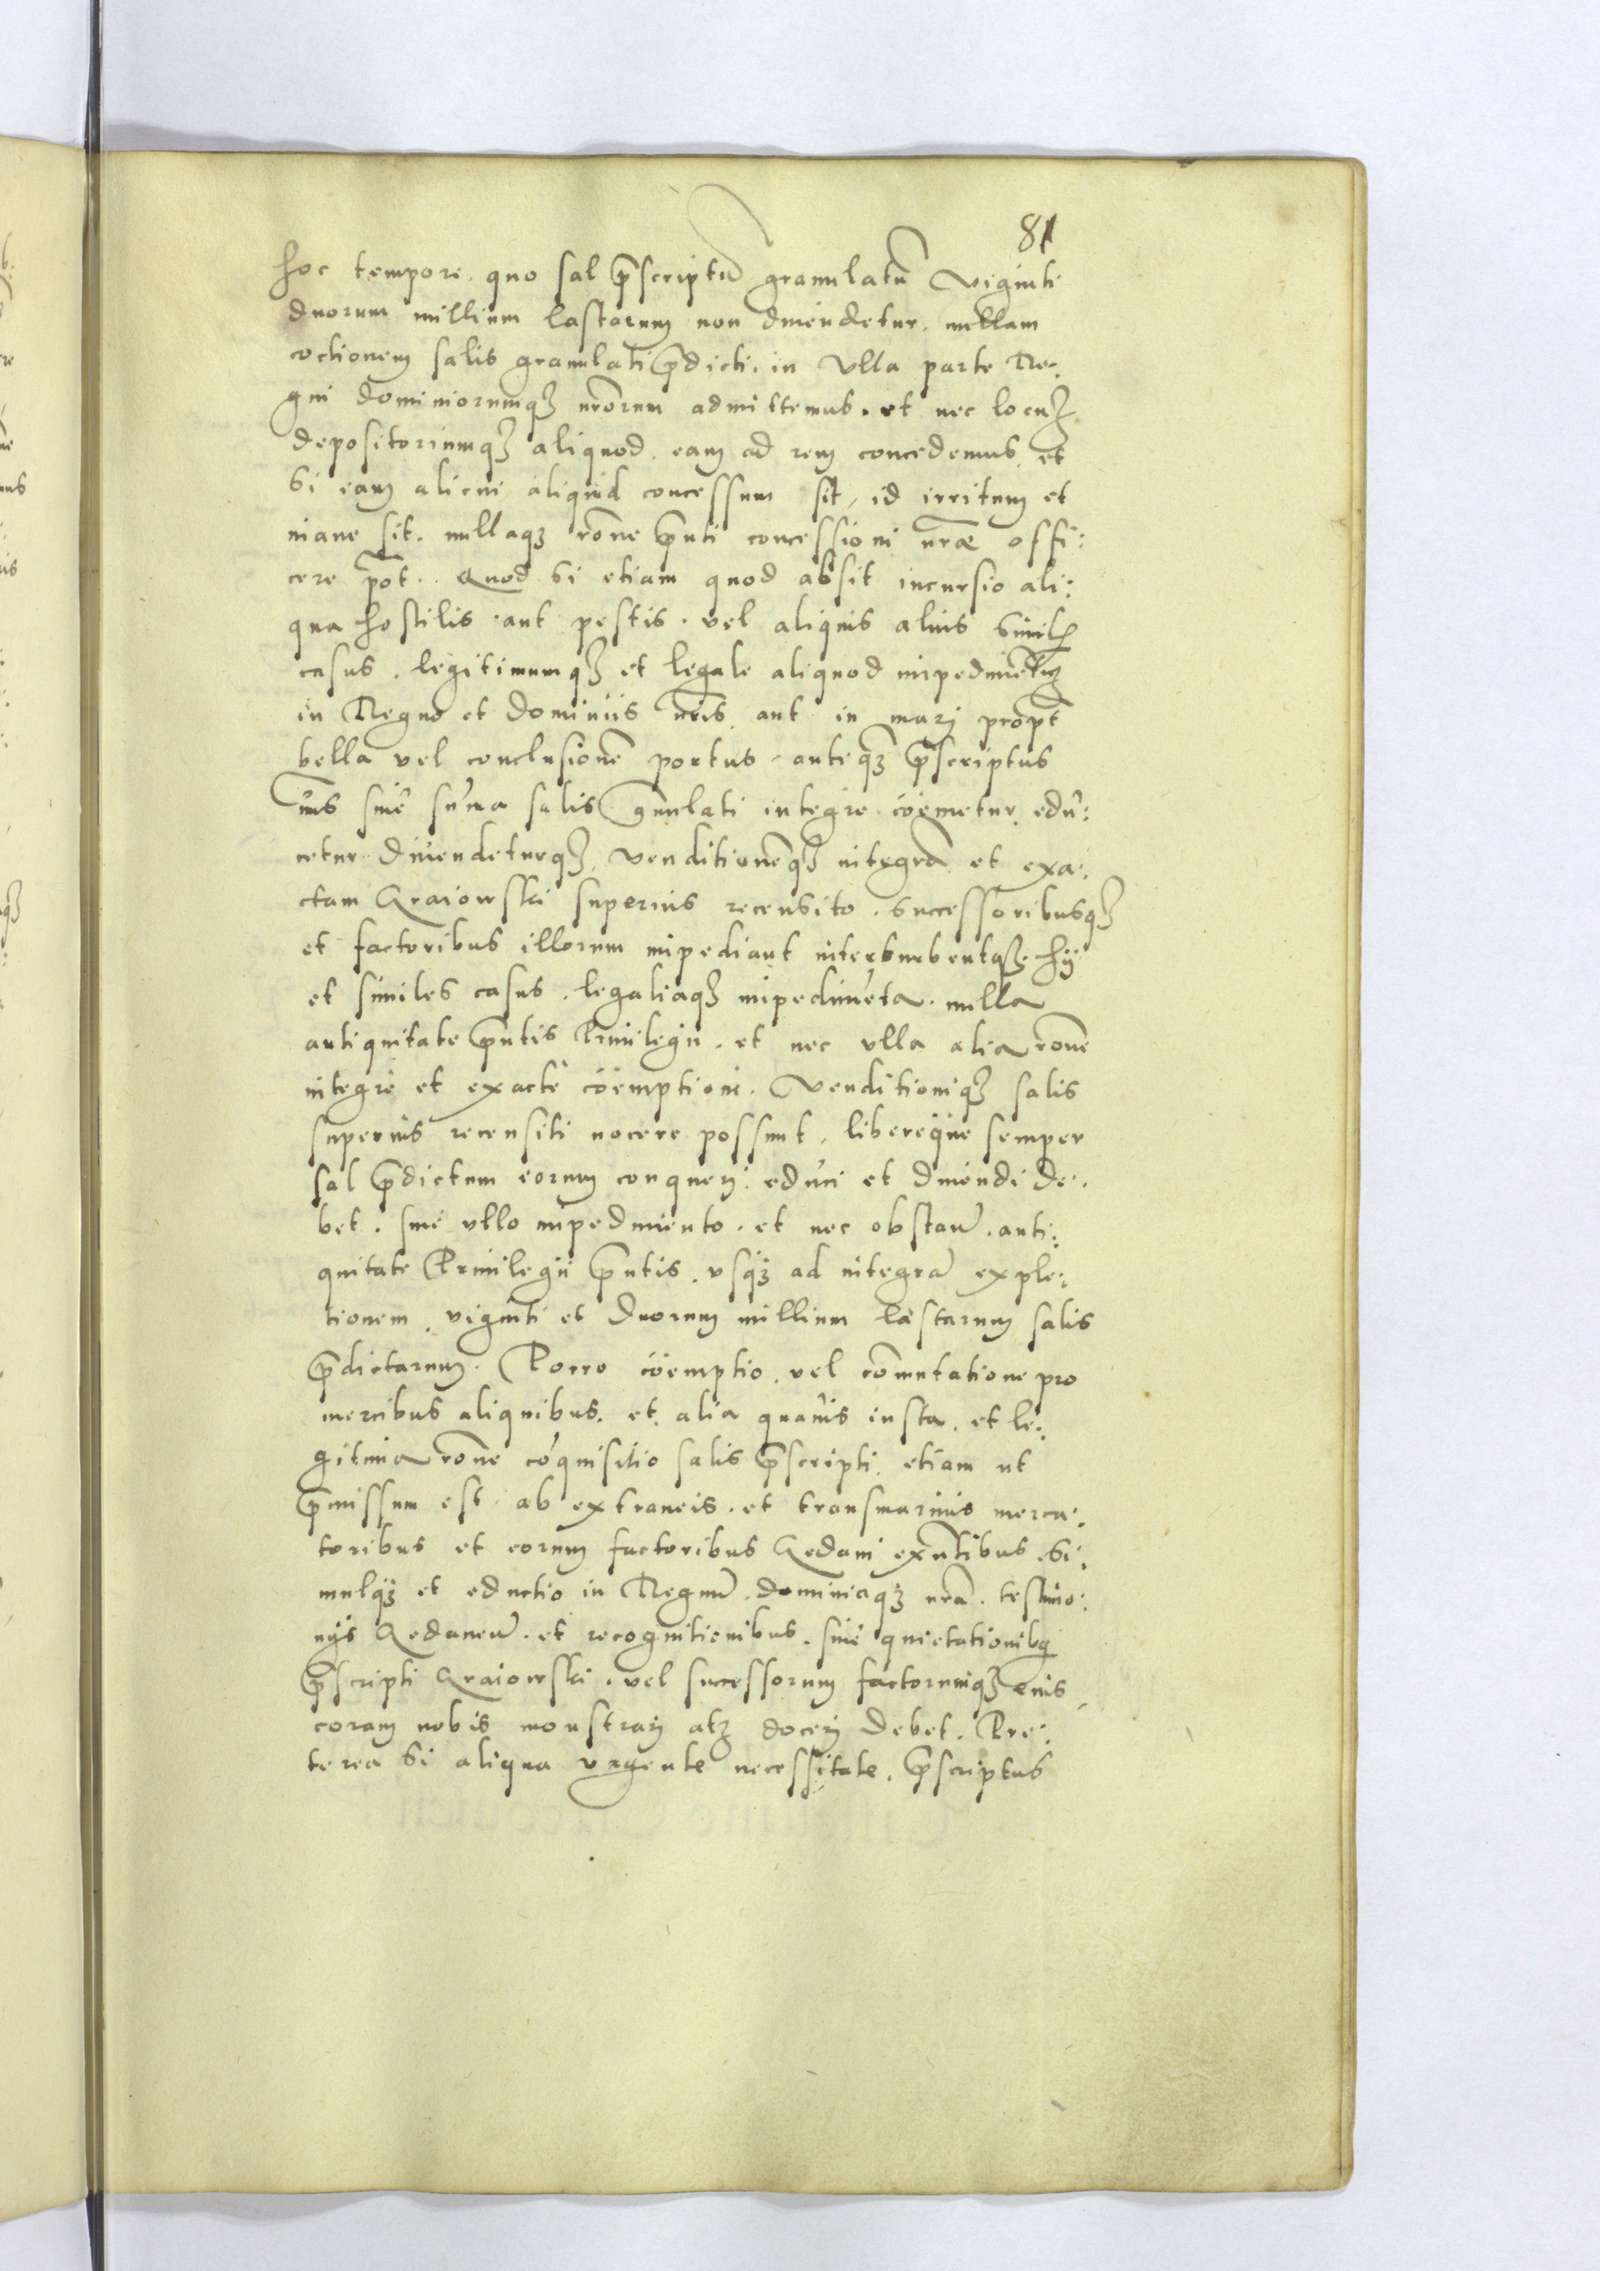 81
hoc tempore quo sal p̄scriptū granulatū viginti
duorum millium lastarum non divendetur. nullam
coctionem salis granulati p̄dicti. in ulla parte Re:
gni dominiorumqꝫ nr̄orum admittemus. et nec locuꝫ
depositoriumqꝫ aliquod eam ad rem concedemus et
si eam alicui aliquid concessum sit, id irritum et
inane sit. nullaqꝫ rōne p̄nti concessioni nr̄æ offi:
cere p̄ot.. Quod si etiam quod absit incursio ali:
qua hostilis. aut pestis. vel aliquis alius simil
casus. legitimumqꝫ et legale aliquod impedimētꝫ
in Regno et dominiis nr̄is aut in marj propt
bella vel conclusionē portus. anteqꝫ p̄scriptus
sive sūma salis gnulati integre cöemetur edu:
cetur divendeturqꝫ, venditionēqꝫ integrā et exa:
ctam Kraiowski superius recensito. successoribusqꝫ
et factoribus illorum impediant interturbentqꝫ hÿ
et similes casus. legaliaqꝫ impedimēta. nulla
antiquitate p̄ntis Privilegii. et nec ulla alia rōne
integre et exacte cöemptioni. venditioniqꝫ salis
superius recensiti nocere possunt. libereque semper
sal p̄dictum eorum conquerj. educi et divendi de:
bet. sine ullo impedimento. et nec obstan̄. anti:
quitate Privilegii p̄ntis. usqꝫ ad integrā exple:
tionem. viginti et duorum millium lastarum salis
p̄dictarum. Porro cöemptio. vel cōmutatione pro
mercibus aliquibus. et alia quavis iusta. et le:
gitima rōne coquisitio salis p̄scripti. etiam ut
p̄missum est. ab extraneis. et transmarinis merca:
toribus et eorum factoribus Gedani exn̄tibus. Si:
mulqꝫ et eductio in Regnū. dominiaqꝫ nr̄a. testimo:
nÿs Gedanen̄. et recognitionibus. sive quietationibꝗ
p̄scripti Kraiowski. vel successorum factorumqꝫ eius
coram nobis monstrarj atꝫ docerj debet. Pre:
terea si aliqua urgente necessitate. p̄scriptus